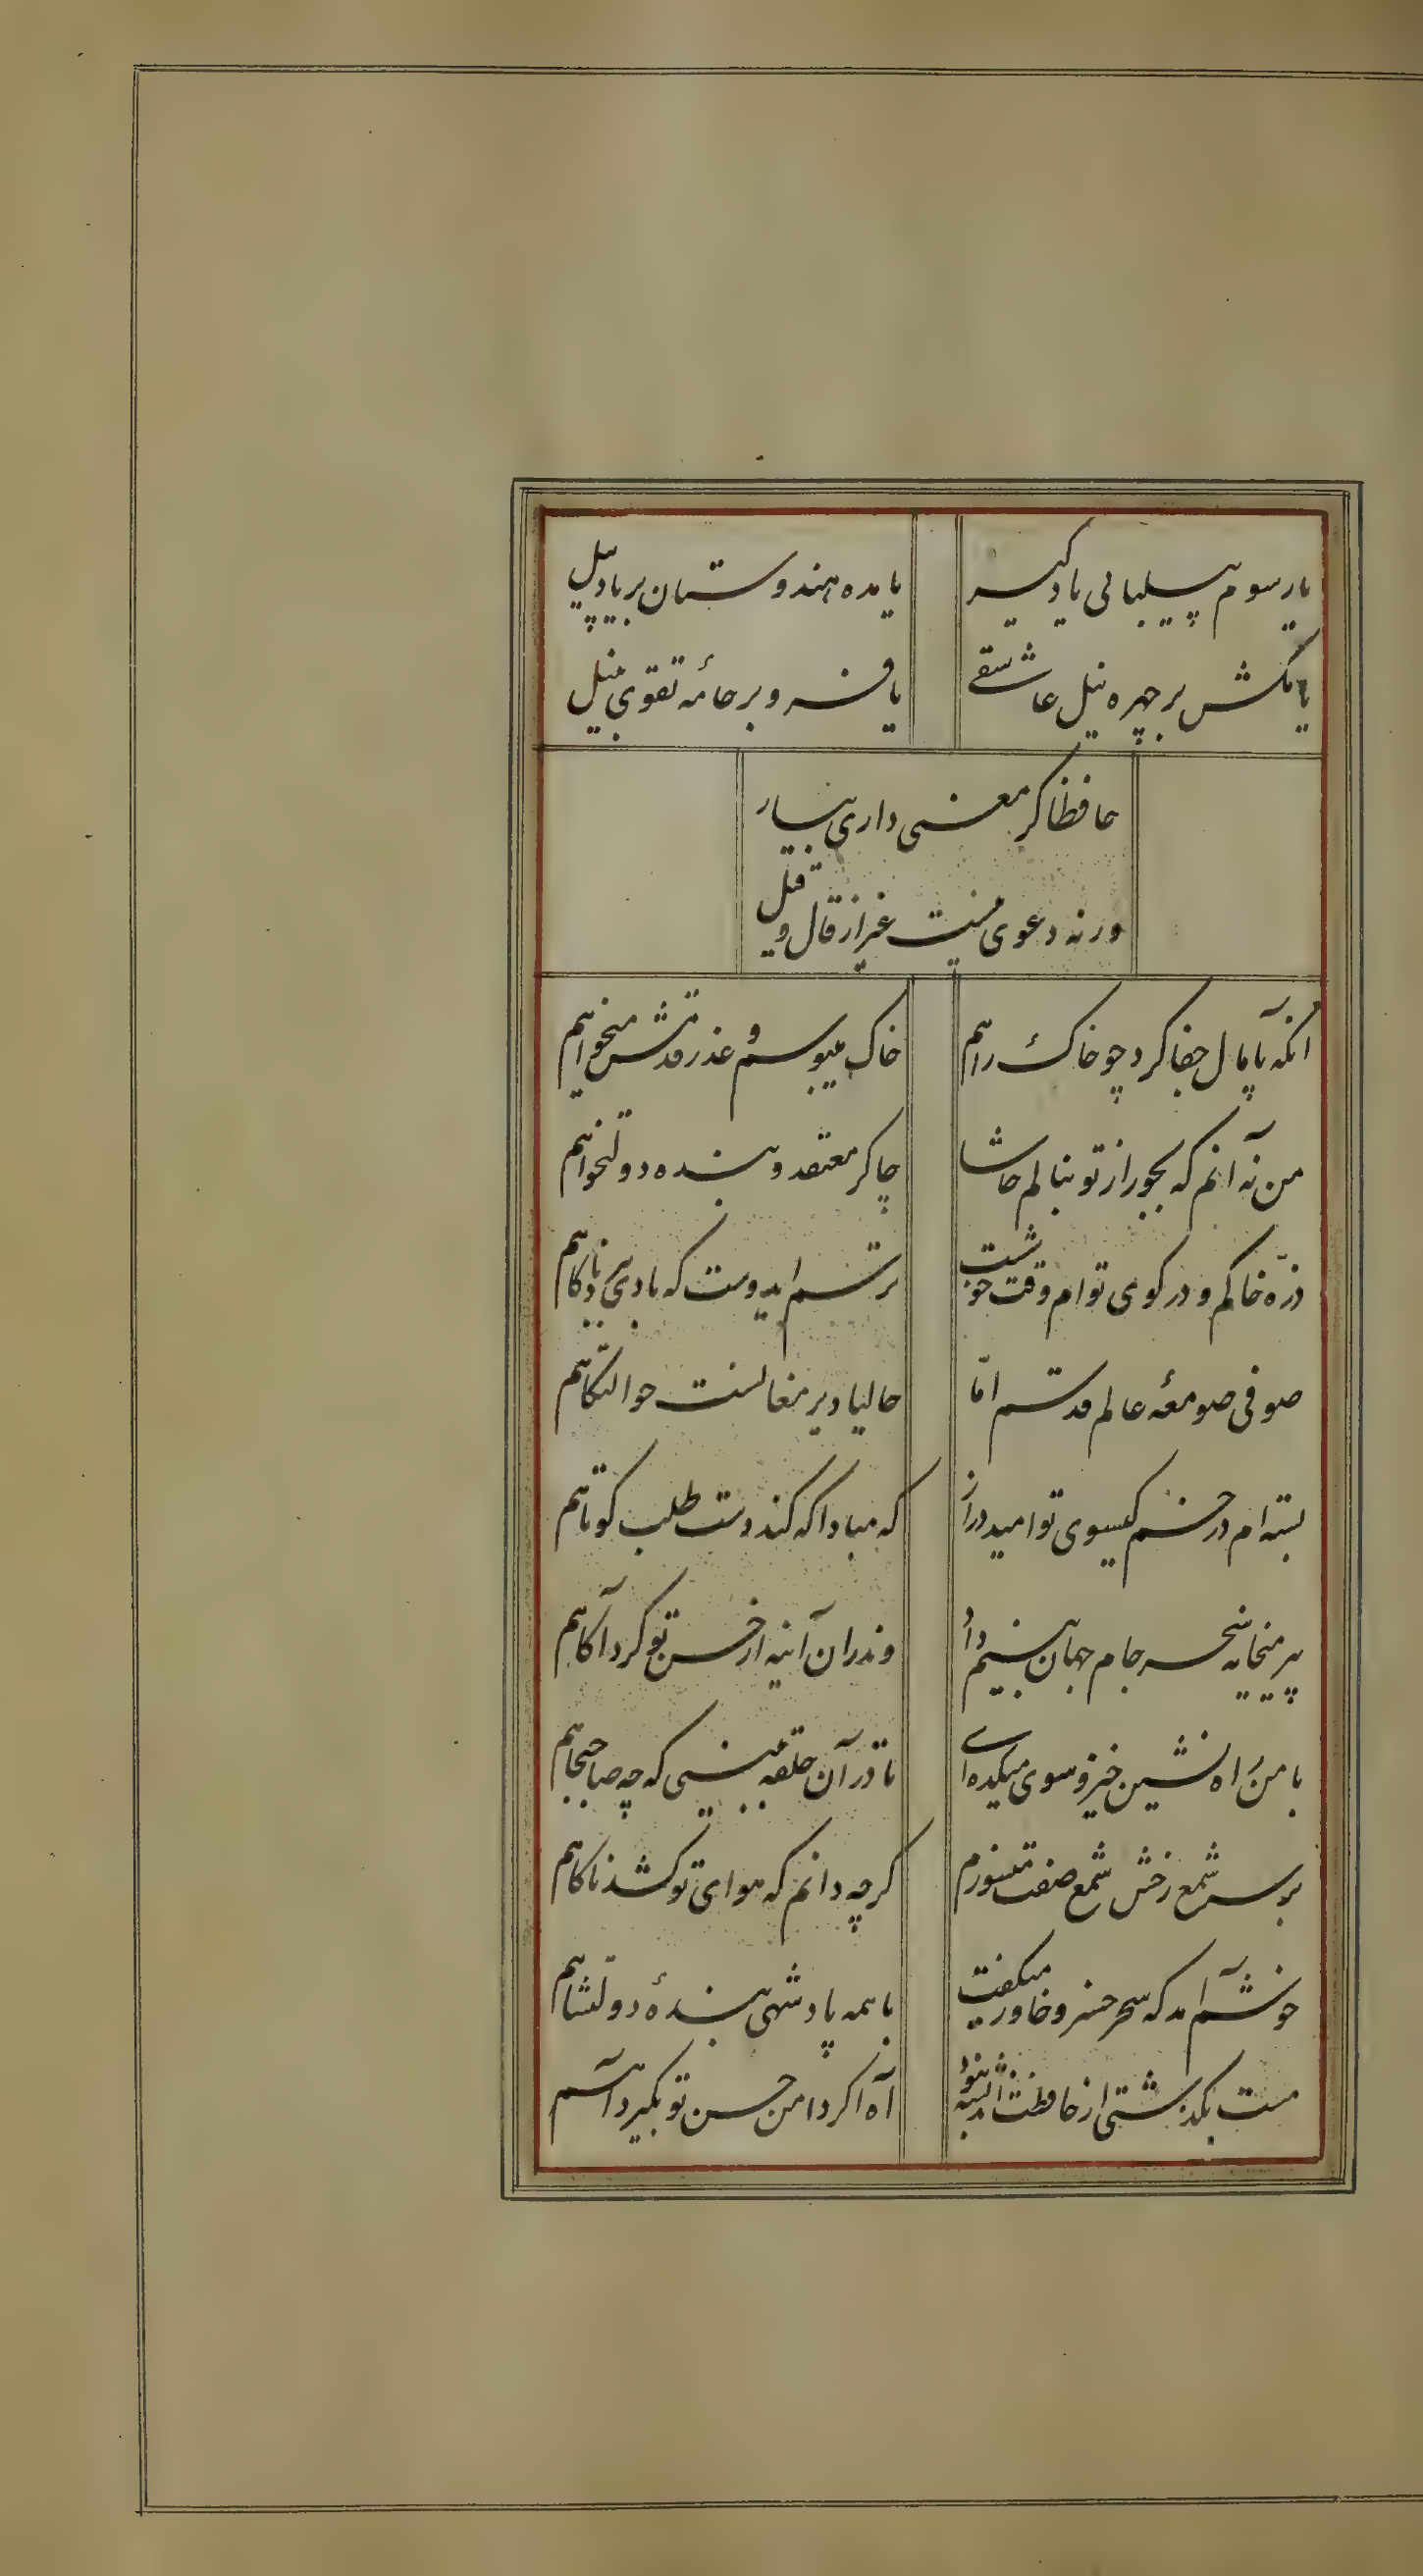 یا رسوم پیلبانی یاد گیر یا مده هندوستان بریاد پیل
یا مکش بر چهره نیل عاشقی یا فرو بر جامهٔ تقوی بنیل
حافظا گر معنی داری بیار
ورنه دعوی نیست غیر از قال و قیل
آنکه پامال جفا کرد چو خاک راهم خاک میبوسم و عذر قدمش میخواهم
من نه آنم که بجور از تو بنالم حاشا چاکر معتقد و بنده دولتخواهم
ذرّه خاکم و در کوی توام وقت خوشست ترسم ایدوست که بادی ببرد ناگاهم
صوفی صومعهٔ عالم قدسم امّا حالیا دیر مغانست حوالتگاهم
بسته‌ام در خم گیسوی تو امید دراز که مبادا که کند دست طلب کوتاهم
پیر میخانه سحر جام جهان بینم داد وندران آینه از حسن تو کرد آگاهم
با من راه نشین خیز و سوی میکده آی تا در آن حلقه ببینی که چه صاحبجاهم
بر سر شمع رخش شمع صفت میسوزم گرچه دانم که هوای تو کشد ناگاهم
خوشم آمد که سحر خسرو خاور میگفت با همه پادشهی بندهٔ دولتشاهم
مست بگذشتی از حافظت اندیشه نبود آه اگر دامن حسن تو بگیرد آهم